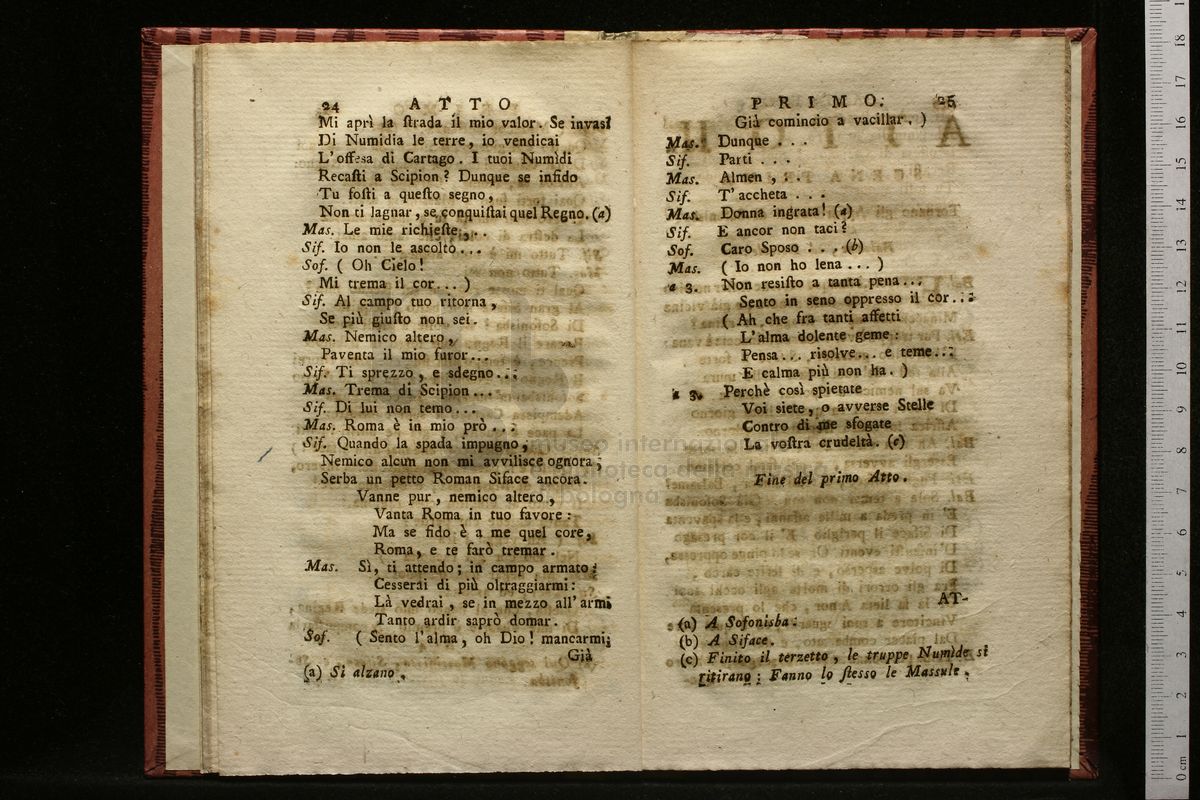 24 ATTO
Mi aprì la ſtrada il mio valor. Se invasi
Di Numidia le terre, io vendicai
L'offesa di Cartago. I tuoi Numìdi
Recaſti a Scipion? Dunque se infido
Tu foſti a queſto segno,
Non ti lagnar, se conquiſtai quel Regno. (a)
Mas. Le mie richieſte...
Sif. Io non le ascolto...
Sof. ( Oh Cielo!
Mi trema il cor... )
Sif. Al campo tuo ritorna,
Se più giuſto non sei.
Mas. Nemico altero,
Paventa il mio furor...
Sif. Ti sprezzo, e sdegno...
Mas. Trema di Scipion...
Sif. Di lui non temo...
Mas. Roma è in mio prò...
Sif. Quando la spada impugno,
Nemico alcun non mi avvilisce ognora;
Serba un petto Roman Siface ancora.
Vanne pur, nemico altero,
Vanta Roma in tuo favore:
Ma se fido è a me quel core,
Roma, e te farò tremar.
Mas. Sì, ti attendo; in campo armato
Cesserai di più oltraggiarmi:
Là vedrai, se in mezzo all'armi
Tanto ardir saprò domar.
Sof. ( Sento l'alma, oh Dio! mancarmi;
Già
(a) Si alzano.
PRIMO. 25
Già comincio a vacillar. )
Mas. Dunque...
Sif. Parti...
Mas. Almen,..
Sif. T'accheta...
Mas. Donna ingrata! (a)
Sif. E ancor non taci?
Sof. Caro Sposo... (b)
Mas. ( Io non ho lena... )
a 3. Non resiſto a tanta pena...
Sento in seno oppresso il cor...
( Ah che fra tanti affetti
L'alma dolente geme
Pensa... risolve... e teme...
E calma più non ha. )
a 3. Perchè così spietate
Voi siete, o avverse Stelle
Contro di me sfogate
La voſtra crudeltà. (c)
Fine del primo Atto.
AT-
(a) A Sofonisba.
(b) A Siface.
(c) Finito il terzetto, le truppe Numìde si
ritirano; Fanno lo ſtesso le Massule.
museo internazionale
biblioteca della musica
bologna
0 cm 1 2 3 4 5 6 7 8 9 10 11 12 13 14 15 16 17 18